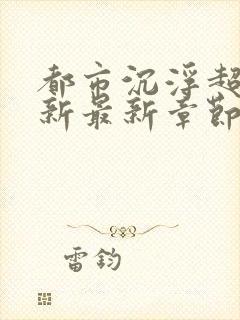 都市沉浮超
新最新章節
雷鈞